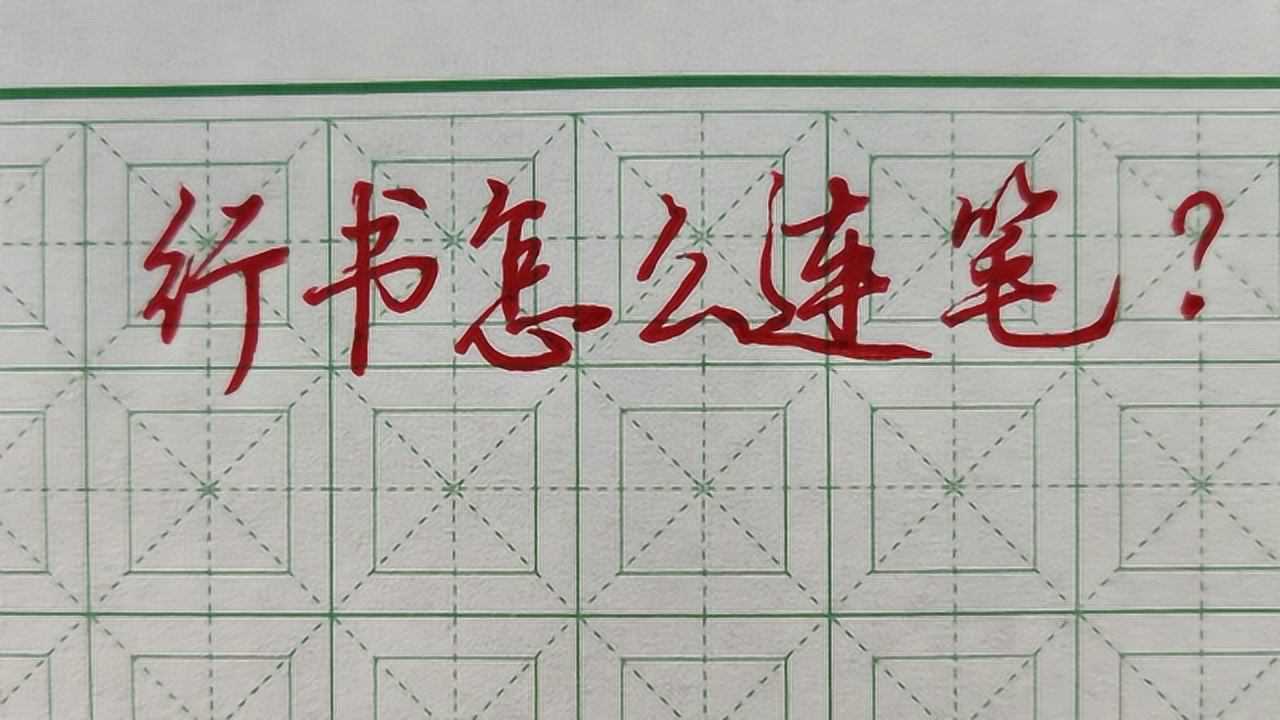 行书怎么连笔?